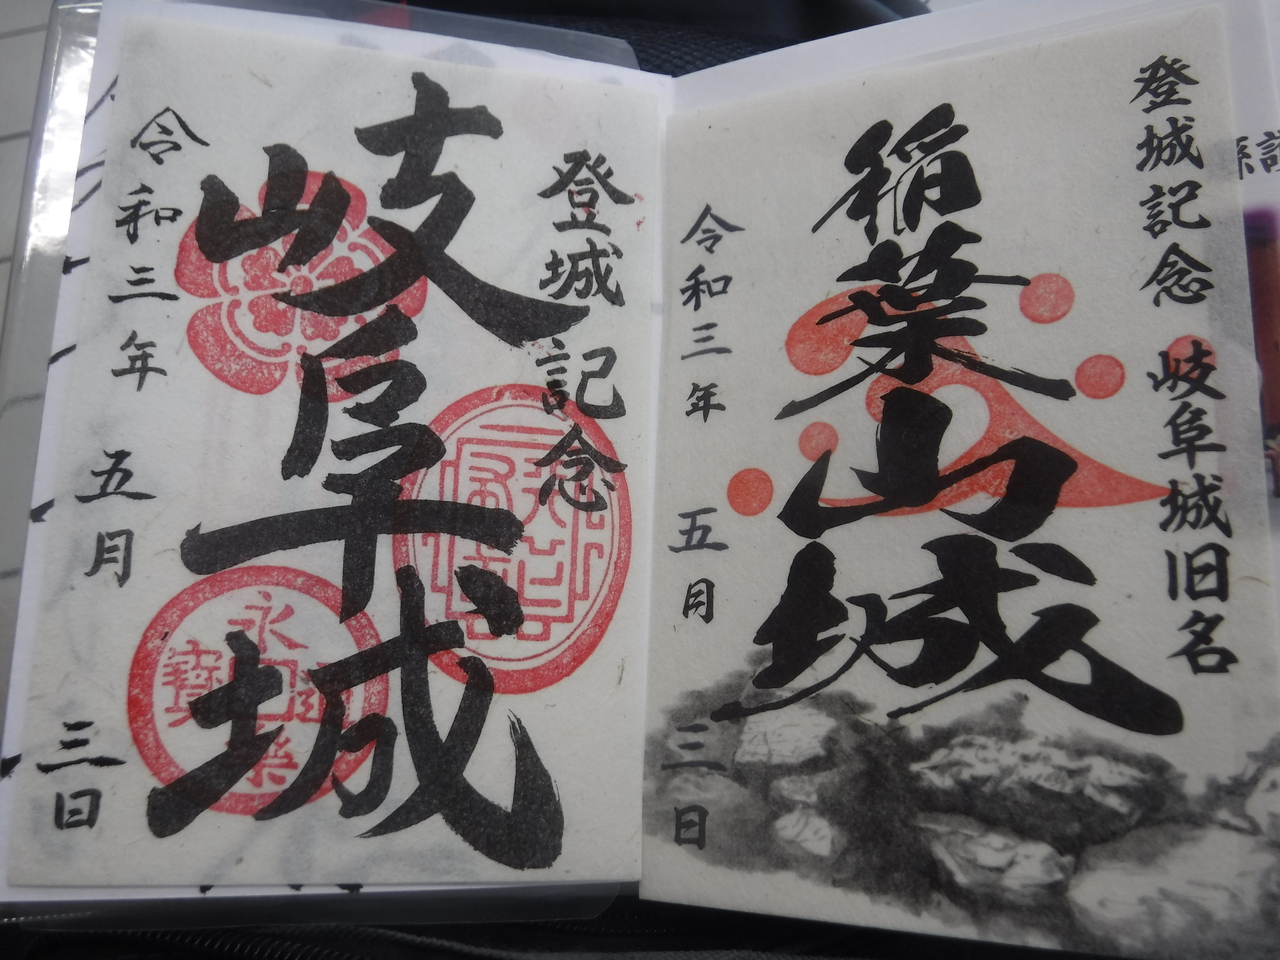 登城記念 岐阜城旧名
稲葉山城
令和三年 五月 三日
登城記念
岐阜城
令和三年 五月 三日
永樂
寳